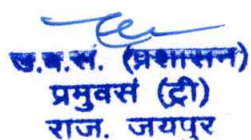 उ.व.सं. (प्रशासन)
प्रमुवसं (टी)
राज. जयपुर